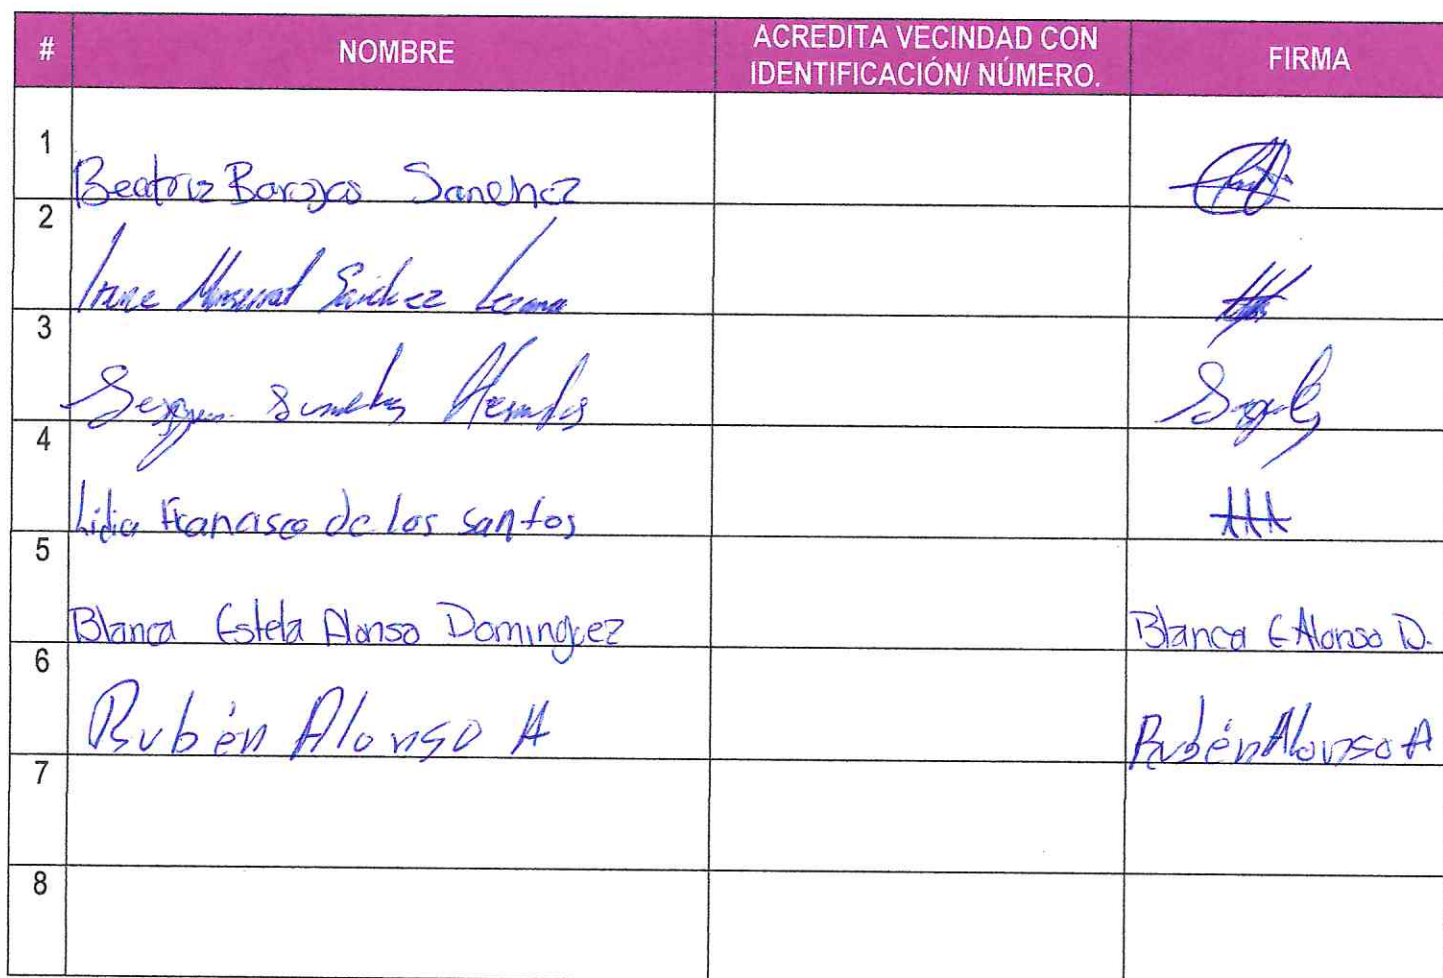 # NOMBRE ACREDITA VECINDAD CON IDENTIFICACIÓN/ NÚMERO. FIRMA
1 Beatriz Barojas Sanchez
2 Irene Monserrat Sánchez Lezama
3 Sanchez
4 Lidia Francisco de los santos
5 Blanca Estela Alonso Dominguez Blanca E Alonso D.
6 Rubén Alonso A Rubén Alonso A
7
8